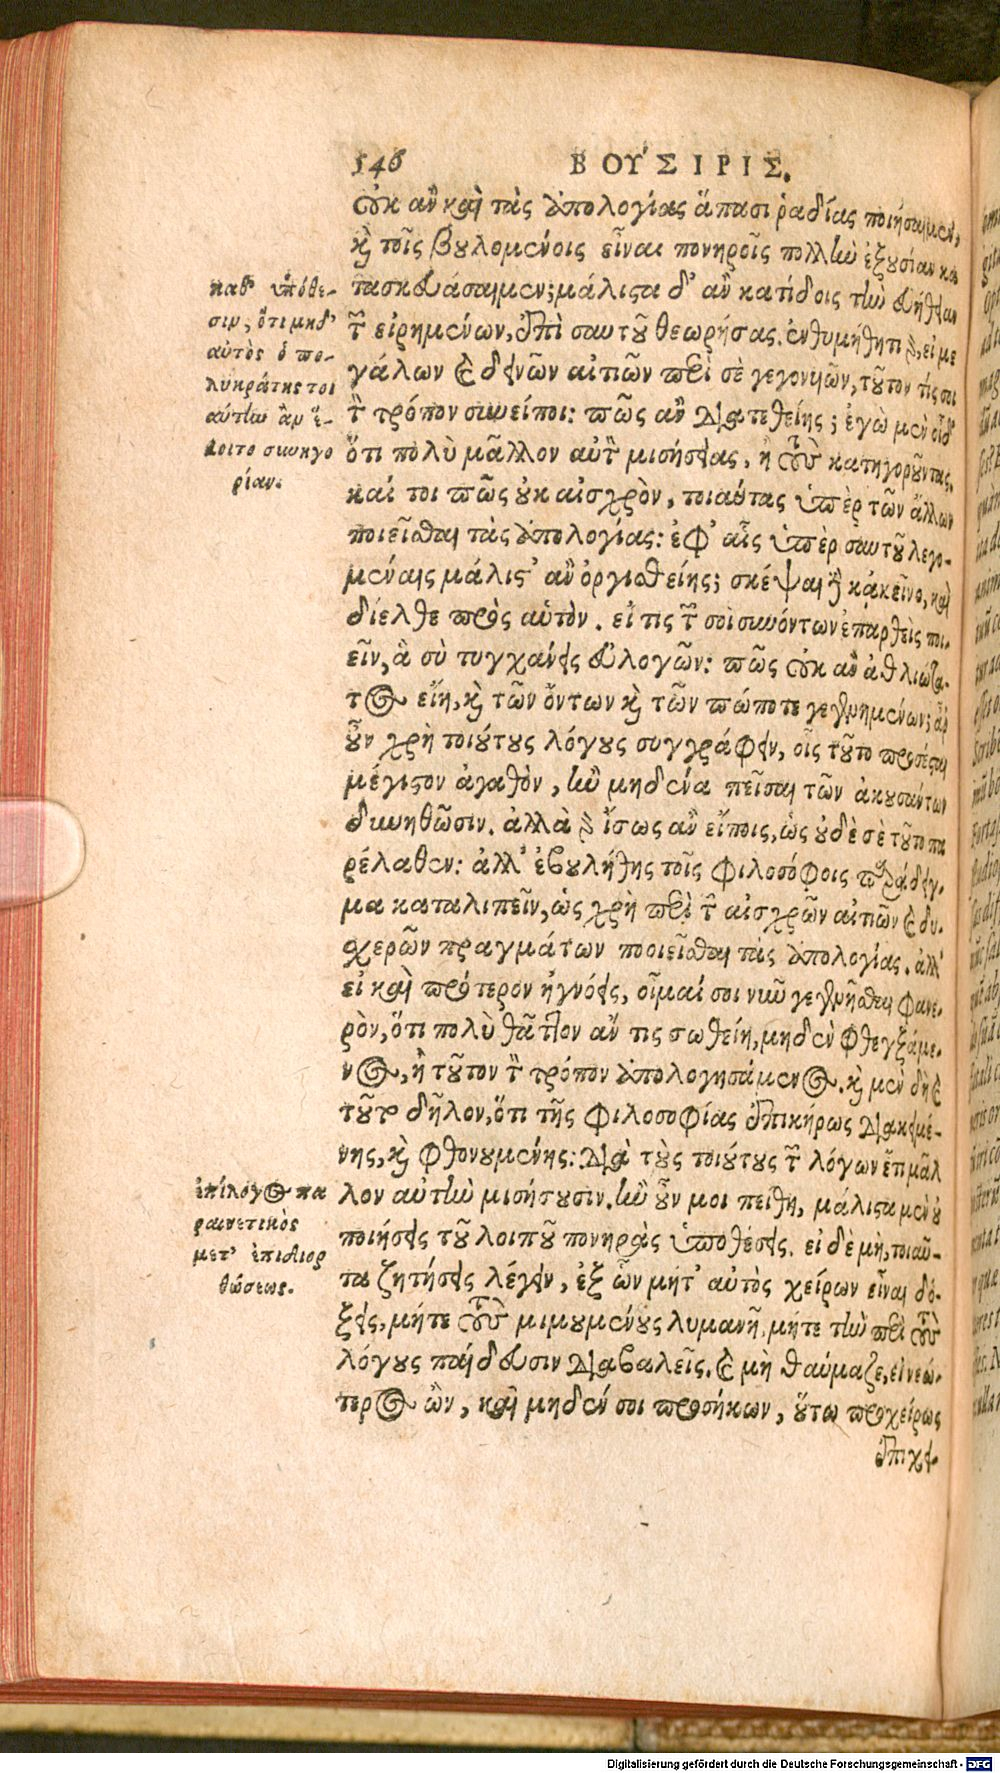 546 ΒΟΥΣΙΡΙΣ.
οὐκ ἂν καὶ τὰς ἀπολογίας ἅπασι ῥᾳδίας ποιήσαιμεν,
καὶ τοῖς βουλομένοις εἶναι πονηροῖς πολλὴν ἐξουσίαν κα
τασκευάσαιμεν; μάλιστα δ' ἂν κατίδοις τὴν εὐήθειαν
τῶν εἰρημένων, ἐπὶ σαυτοῦ θεωρήσας. ἐνθυμήθητι γὰρ, εἰ με
γάλων καὶ δεινῶν αἰτιῶν περὶ σὲ γεγονυιῶν, τοῦτον τίς σοι
τὸν τρόπον συνείποι: πῶς ἂν διατεθείης; ἐγὼ μὲν οἶδ'
ὅτι πολὺ μᾶλλον αὐτὸν μισήσειας, ἢ τοὺς κατηγοροῦντας.
καί τοι πῶς οὐκ αἰσχρὸν, τοιαύτας ὑπὲρ τῶν ἄλλων
ποιεῖσθαι τὰς ἀπολογίας: ἐφ' αἷς ὑπὲρ σαυτοῦ λεγο-
μέναις μάλιστ' ἂν ὀργισθείης; σκέψαι δὲ κἀκεῖνο, καὶ
δίελθε πρὸς αὑτὸν. εἰ τις τῶν σοὶ συνόντων ἐπαρθεὶς ποι-
εῖν, ἃ σὺ τυγχάνεις εὐλογῶν: πῶς οὐκ ἂν ἀθλιώτα-
τος εἴη, καὶ τῶν ὄντων καὶ τῶν πώποτε γεγενημένων; ἆρ'
οὖν χρὴ τοιούτους λόγους συγγράφειν, οἷς τοῦτο προσέσται
μέγιστον ἀγαθὸν, ἢν μηδένα πεῖσαι τῶν ἀκουσάντων
δυνηθῶσιν. ἀλλὰ γὰρ ἴσως ἂν εἴποις, ὡς οὐδὲ σὲ τοῦτο πα
ρέλαθεν: ἀλλ' ἐβουλήθης τοῖς φιλοσόφοις παράδειγ-
μα καταλιπεῖν, ὡς χρὴ περὶ τῶν αἰσχρῶν αἰτιῶν καὶ δυ-
χερῶν πραγμάτων ποιεῖσθαι τὰς ἀπολογίας. ἀλλ'
εἰ καὶ πρότερον ἠγνόεις, οἶμαί σοι νῦν γεγενῆσθαι φανε-
ρὸν, ὅτι πολὺ θᾶττον ἄν τις σωθείη, μηδὲν φθεγξάμε-
νος, ἢ τοῦτον τὸν τρόπον ἀπολογησάμενος. καὶ μὲν δὴ καὶ
τοῦτο δῆλον, ὅτι τῆς φιλοσοφίας ἐπικήρως διακειμέ-
νης, καὶ φθονουμένης: διὰ τοὺς τοιούτους τῶν λόγων ἔτι μᾶλ
λον αὐτὴν μισήσουσιν. ἢν οὖν μοι πείθῃ, μάλιστα μὲν οὐ
ποιήσεις τοῦ λοιποῦ πονηρὰς ὑποθέσεις. εἰ δὲ μὴ, τοιαῦ-
τα ζητήσεις λέγειν, ἐξ ὧν μήτ' αὐτὸς χείρων εἶναι δό-
ξεις, μήτε τοὺς μιμουμένους λυμανῇ, μήτε τὴν περὶ τοὺς
λόγους παίδευσιν διαβαλεῖς. καὶ μὴ θαύμαζε, εἰ νεώ-
τερος ὢν, καὶ μηδέν σοι προσήκων, οὕτω προχείρως
ἐπιχει-
καθ' ὑπόθε-
σιν, ὅτι μηδ'
αὐτὸς ὁ πο-
λυκράτης τοι
αύτην ἂν ἕ-
λοιτο συνηγο
ρίαν.
ἐπίλογος πα
ραινετικὸς
μετ' ἐπιδιορ
θώσεως.
Digitalisierung gefördert durch die Deutsche Forschungsgemeinschaft - DFG